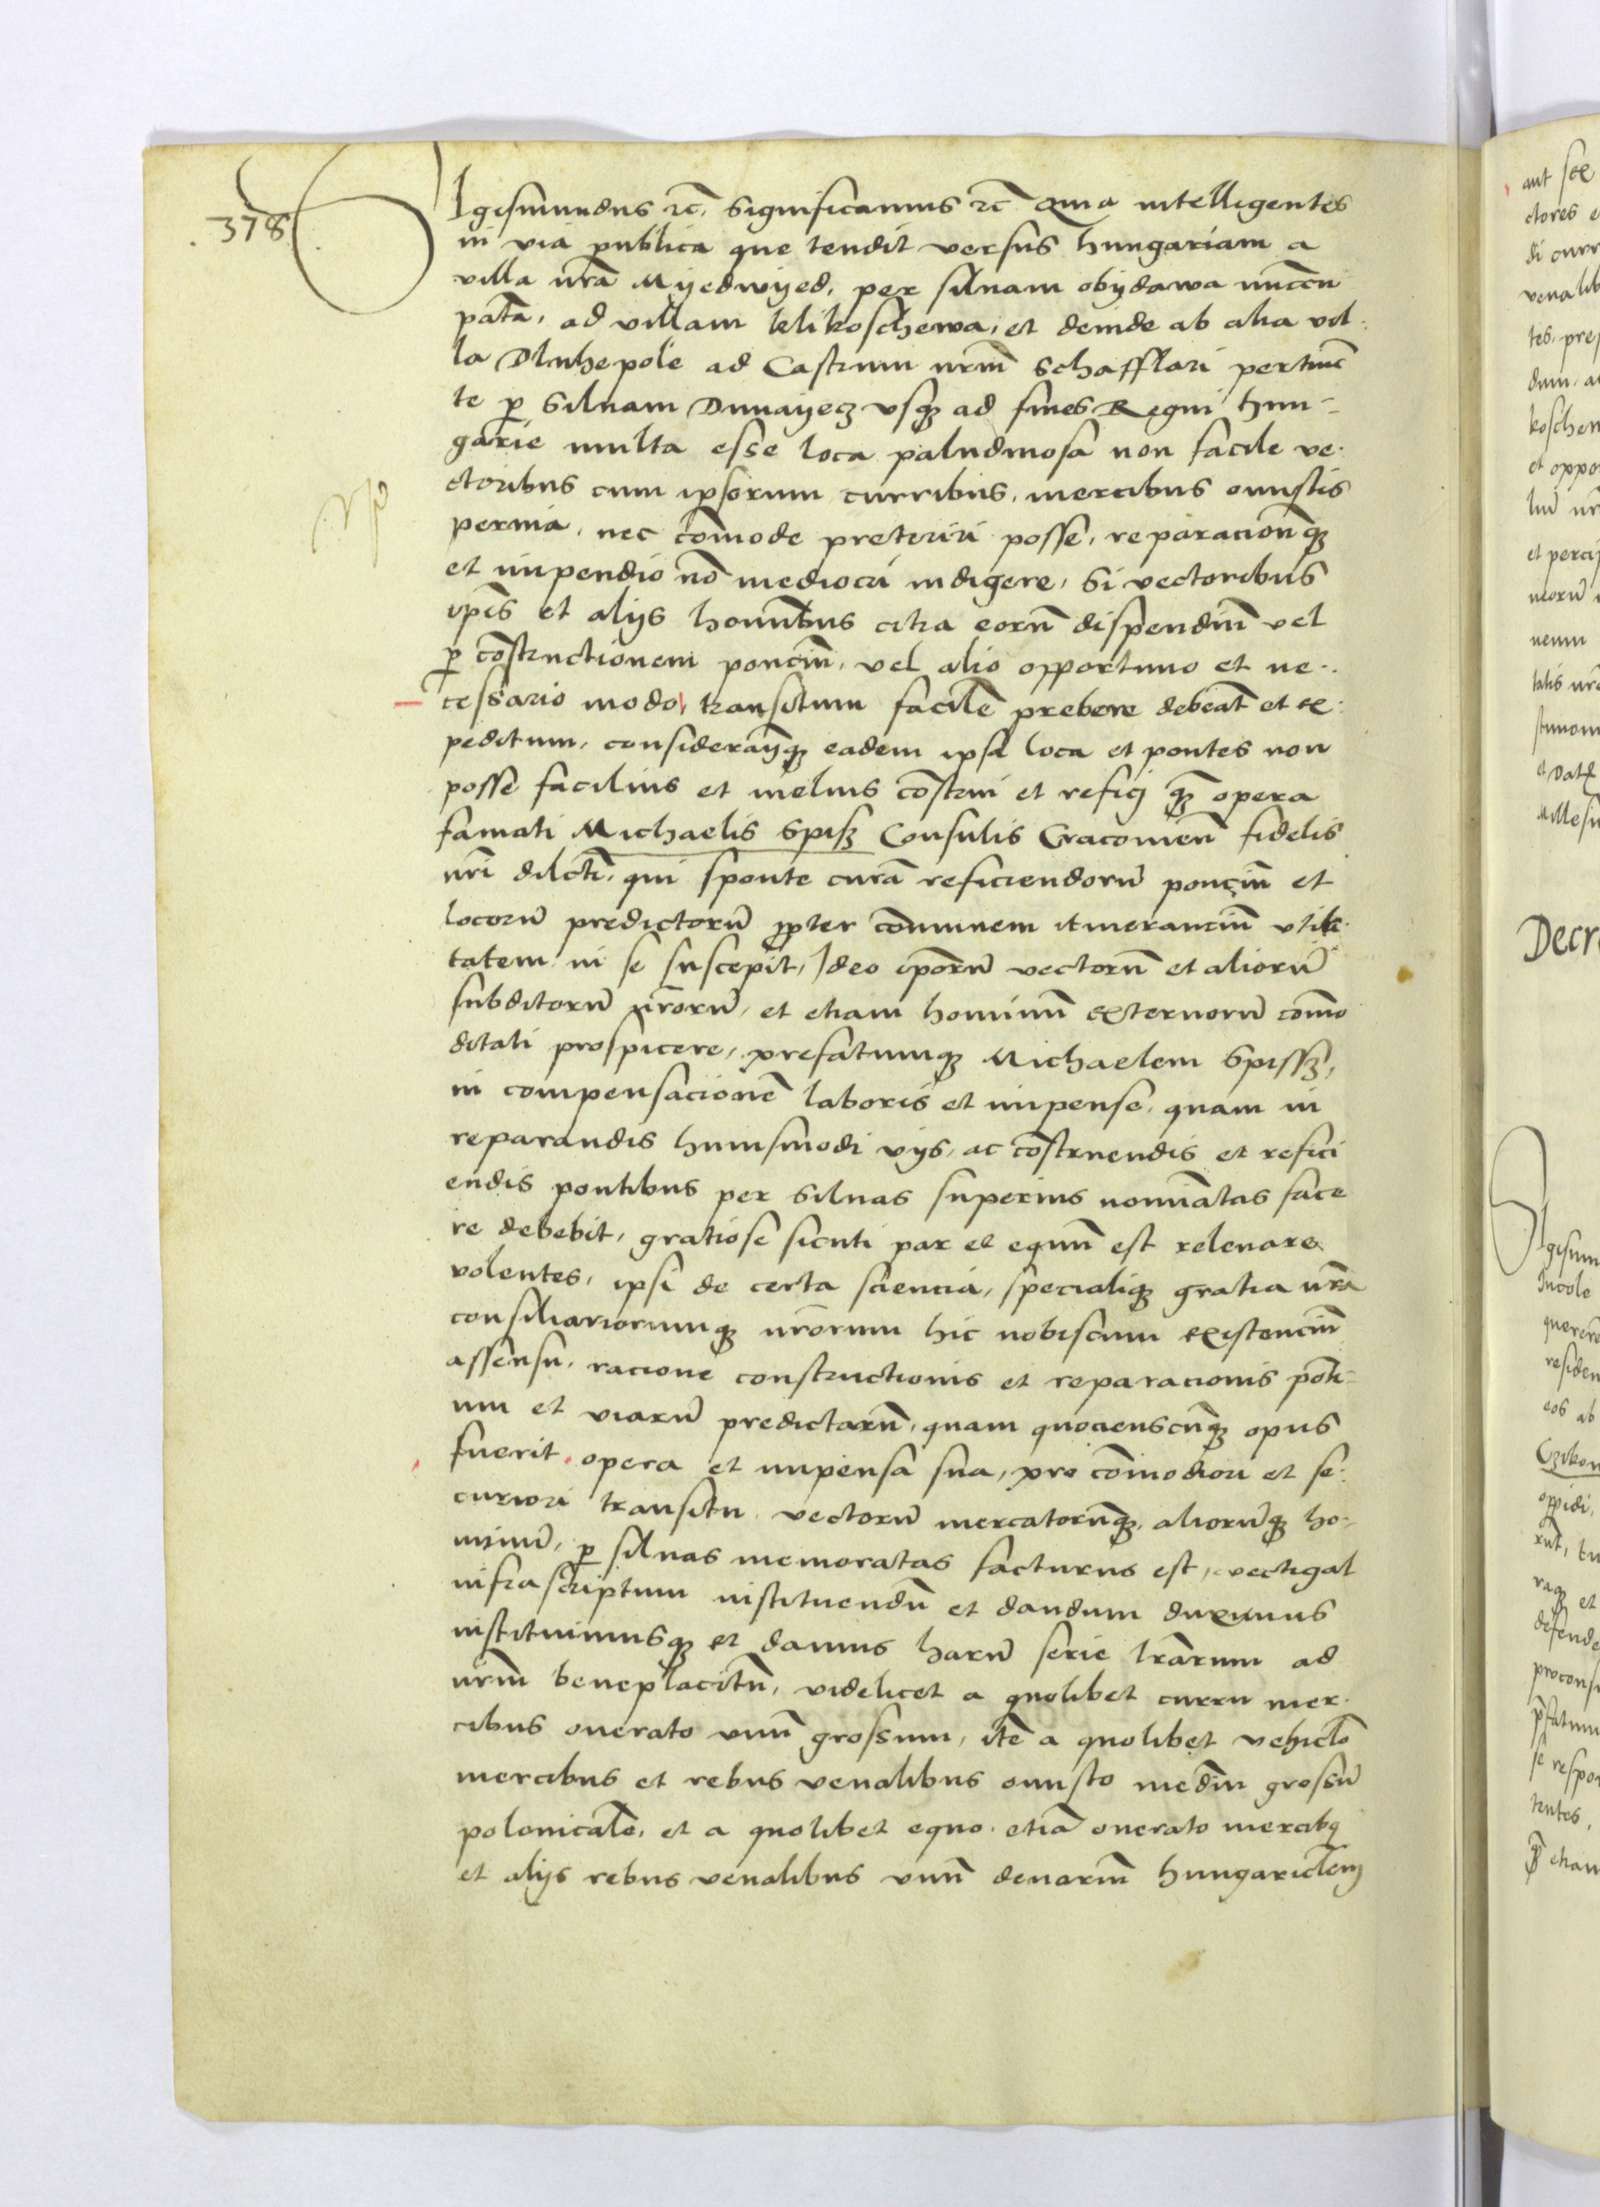 378
SIgismundus etc̄. Significamus etc̄ Quia intelligentes
in via publica que tendit versus hungariam a
villa nr̄a Myedwyed, per siluam obydawa nuncu
patā, ad villam klikoschewa, et deinde ab alia vil
la Dluhepole ad Castrum nrm̄ Schafflari pertinēn
te p siluam Dunayecz vsq ad fines Regni Hun-
garie multa esse loca paludinosa non facile ve-
ctoribus cum ipsorum curribus, mercibus onustis
peruia, nec cōmode preteriri posse, reparacionēq
et impendio nō mediocri indigere, Si vectoribus
ipīs et alijs hominībus citra eorū dispendiū vel
p cōstructionem ponciū, vel alio opportuno et ne-
cessario modo, transitum facilē prebere debeāt et ex-
peditum, considerātesq eadem ipsa loca et pontes non
posse facilius et melius cōstrui et refici q opera
famati Michaelis Spisz Consulis Cracouieñ fidelis
nr̄i dilcti, qui sponte curā reficiendorū ponciū et
locorū predictorū ꝓpter cōmunem itineranciū vtili-
tatem in se suscepit, Ideo ipōrū vectorū et aliorū
subditorū nr̄orū, et etiam hominū externorū cōmo
ditati prospicere, prefatumq Michaelem Spissz,
in compensacionē laboris et impense, quam in
reparandis huiusmodi vijs, ac cōstruendis et refici
endis pontibus per siluas superius nominātas face
re debebit, gratiose sicuti par et equū est releuare
volentes, ipsi de certa sciencia, specialiq gratia nr̄a
consiliariorumq nr̄orum hic nobiscum existenciū
assensu, racione constructionis et reparacionis pōti-
um et viarū predictarū, quam quocienscūq opus
fuerit, opera et impensa sua, pro cōmodiori et se-
curiori transitu vectorū mercatorūq, aliorūq ho-
minū, p siluas memoratas facturus est, vectigal
infrascriptum instituendū et dandum duximus
instituimusq et damus harū serie lr̄arum ad
nrm̄ beneplacitū, videlicet a quolibet curru mer-
cibus onerato vnū grossum, itē a quolibet vehiclō
mercibus et rebus venalibus onusto mediū grossū
polonicalē, et a quolibet equo etiā onerato mercibq
et alijs rebus venalibus vnū denariū hungaricālem